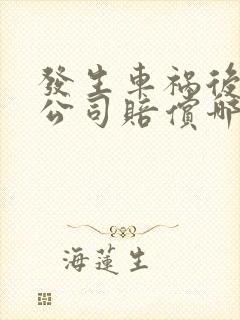 發生車禍後
公司賠償哪
海蓮生